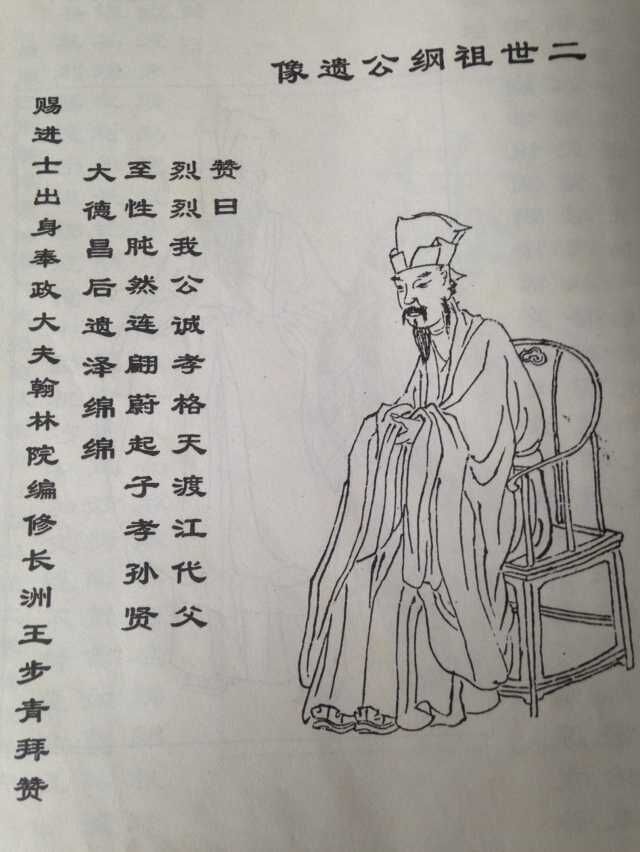 二世祖纲公遗像
赞曰
烈烈我公诚孝格天渡江代父
至性肫然连翩蔚起子孝孙贤
大德昌后遗泽绵绵
赐进士出身奉政大夫翰林院编修长洲王步青拜赞